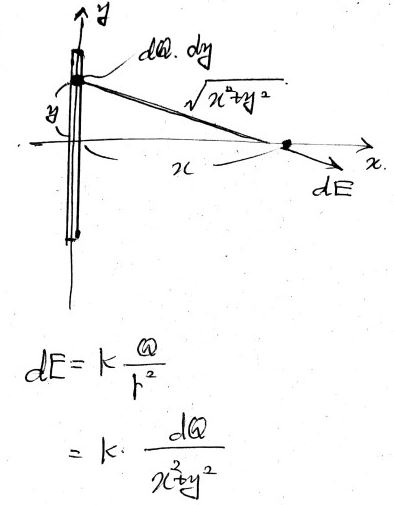 y
dQ. dy
√x²+y²
y
x
x.
dE
dE = k Q/r²
= k. dQ/x²+y²